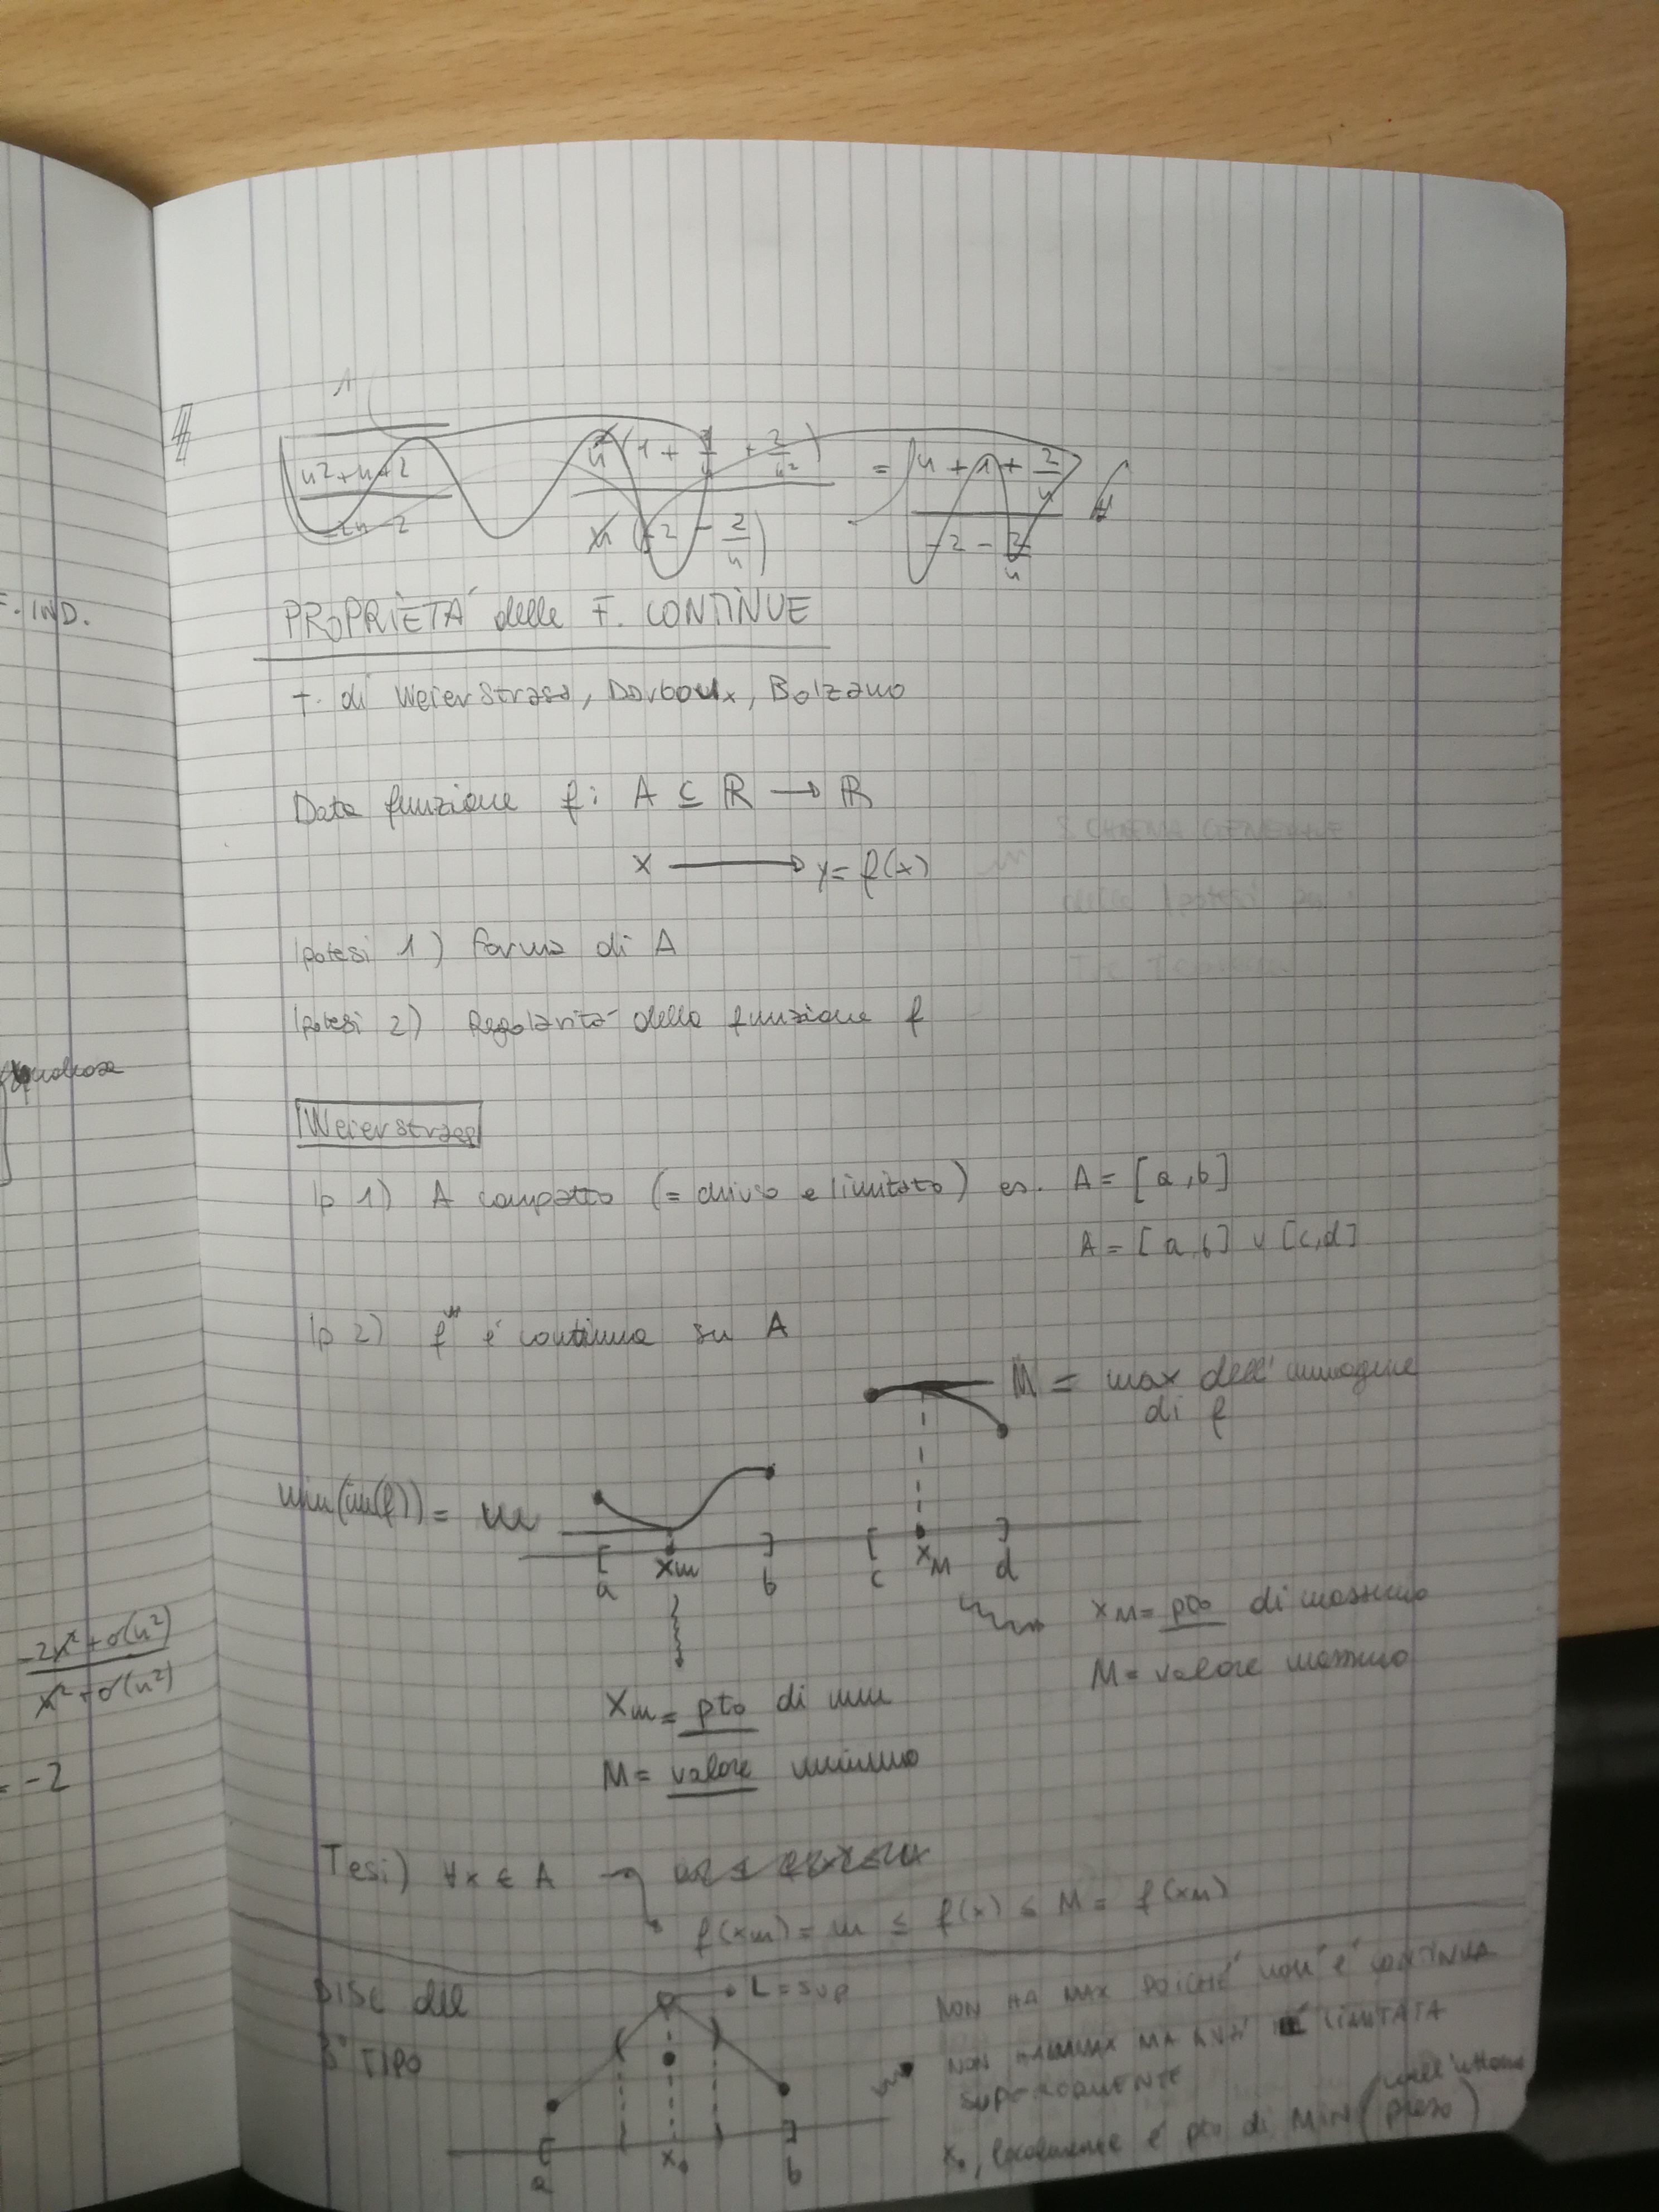 F. IND.
-2n² + o(n²)
n² + o(n²)
= -2
1
n²+n+2
-2n-2
n²(1 + 1/n + 2/n²)
n(-2 - 2/n)
= n + 1 + 2/n
-2 - 2/n
PROPRIETA' delle F. CONTINUE
T. di Weierstrass, Darboux, Bolzano
Data funzione f: A ⊆ ℝ → ℝ
x → y = f(x)
SCHEMA GENERALE
delle ipotesi per i
Tre Teoremi
Ipotesi 1) forma di A
Ipotesi 2) Regolarità della funzione f
Weierstrass
Ip 1) A compatto (= chiuso e limitato) es. A = [a,b]
A = [a,b] ∪ [c,d]
Ip 2) f é continua su A
M = max dell'immagine
di f
min(im(f)) = m
a xm b c xM d
xM = pto di massimo
M = valore massimo
xm = pto di min
M = valore minimo
Tesi) ∀x ∈ A →
f(xm) = m ≤ f(x) ≤ M = f(xM)
DISC del
3° TIPO
L = sup
a x₀ b
NON HA MAX POICHÉ NON É CONTINUA
NON MA LIMITATA
SUPERIORMENTE
x₀, localmente é pto di MIN (nell'intorno
preso)